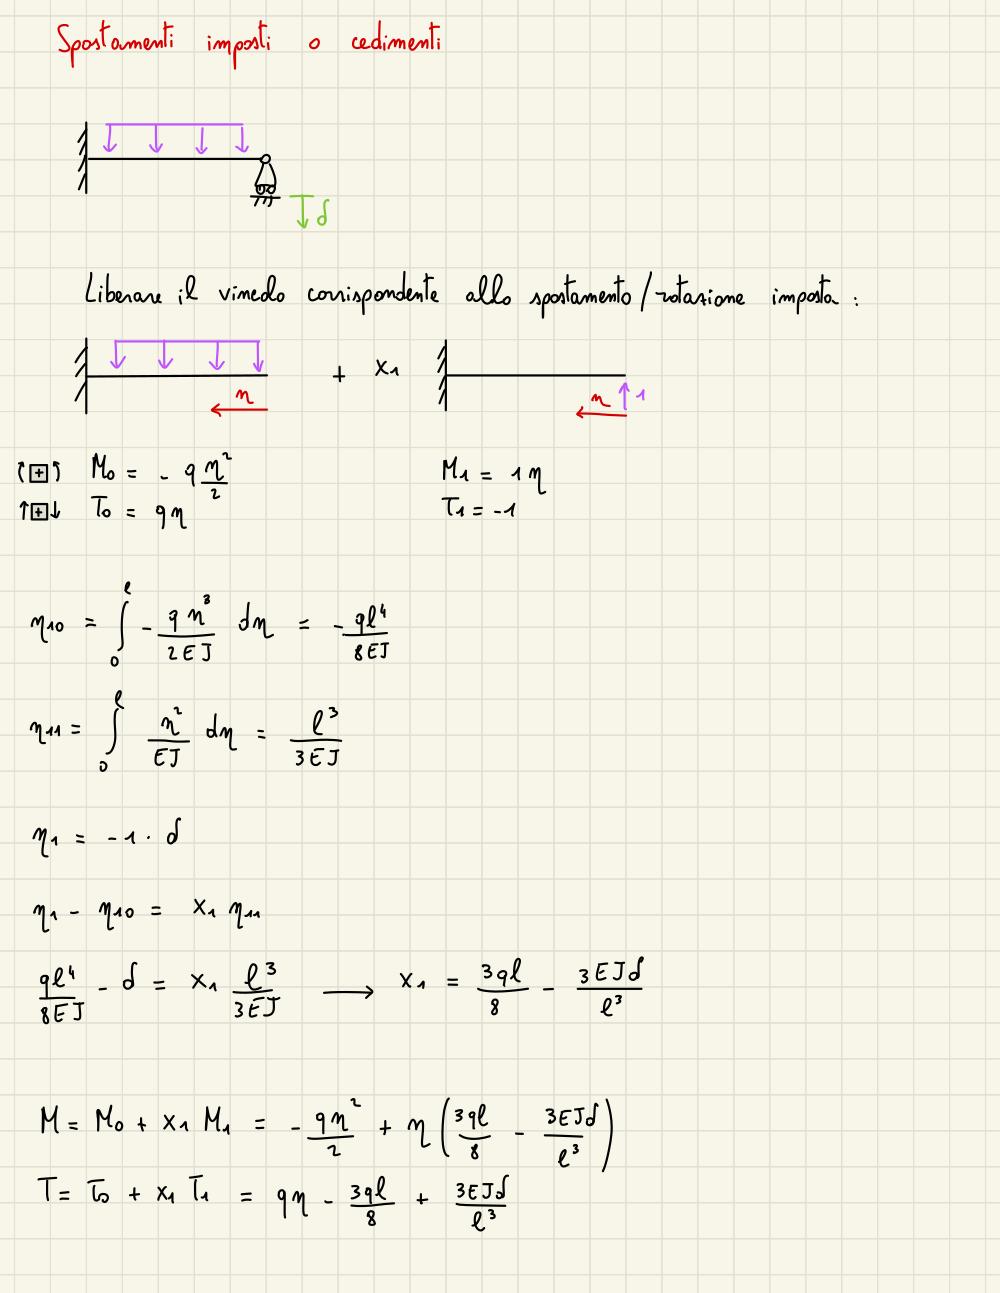 Spostamenti imposti o cedimenti
δ
Liberare il vincolo corrispondente allo spostamento/rotazione imposta :
η + x₁ η 1
M₀ = - qη²/2 M₁ = 1η
T₀ = qη T₁ = -1
η₁₀ = ∫₀ˡ - qη³/2EJ dη = - qℓ⁴/8EJ
η₁₁ = ∫₀ˡ η²/EJ dη = ℓ³/3EJ
η₁ = -1 · δ
η₁ - η₁₀ = x₁ η₁₁
qℓ⁴/8EJ - δ = x₁ ℓ³/3EJ → x₁ = 3qℓ/8 - 3EJδ/ℓ³
M = M₀ + x₁ M₁ = - qη²/2 + η (3qℓ/8 - 3EJδ/ℓ³)
T = T₀ + x₁ T₁ = qη - 3qℓ/8 + 3EJδ/ℓ³